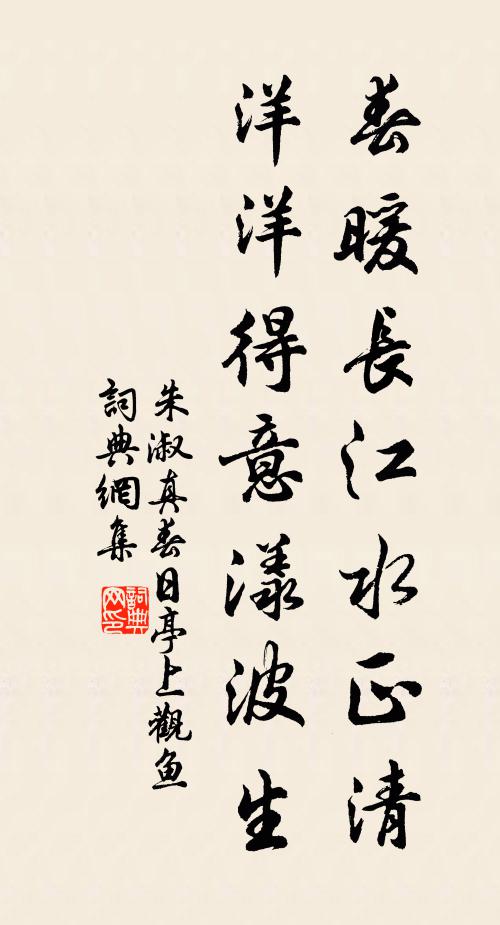 春暖長江水正清
洋洋得意漾波生
朱淑真春日亭上觀魚
詞典網集
詞典网印